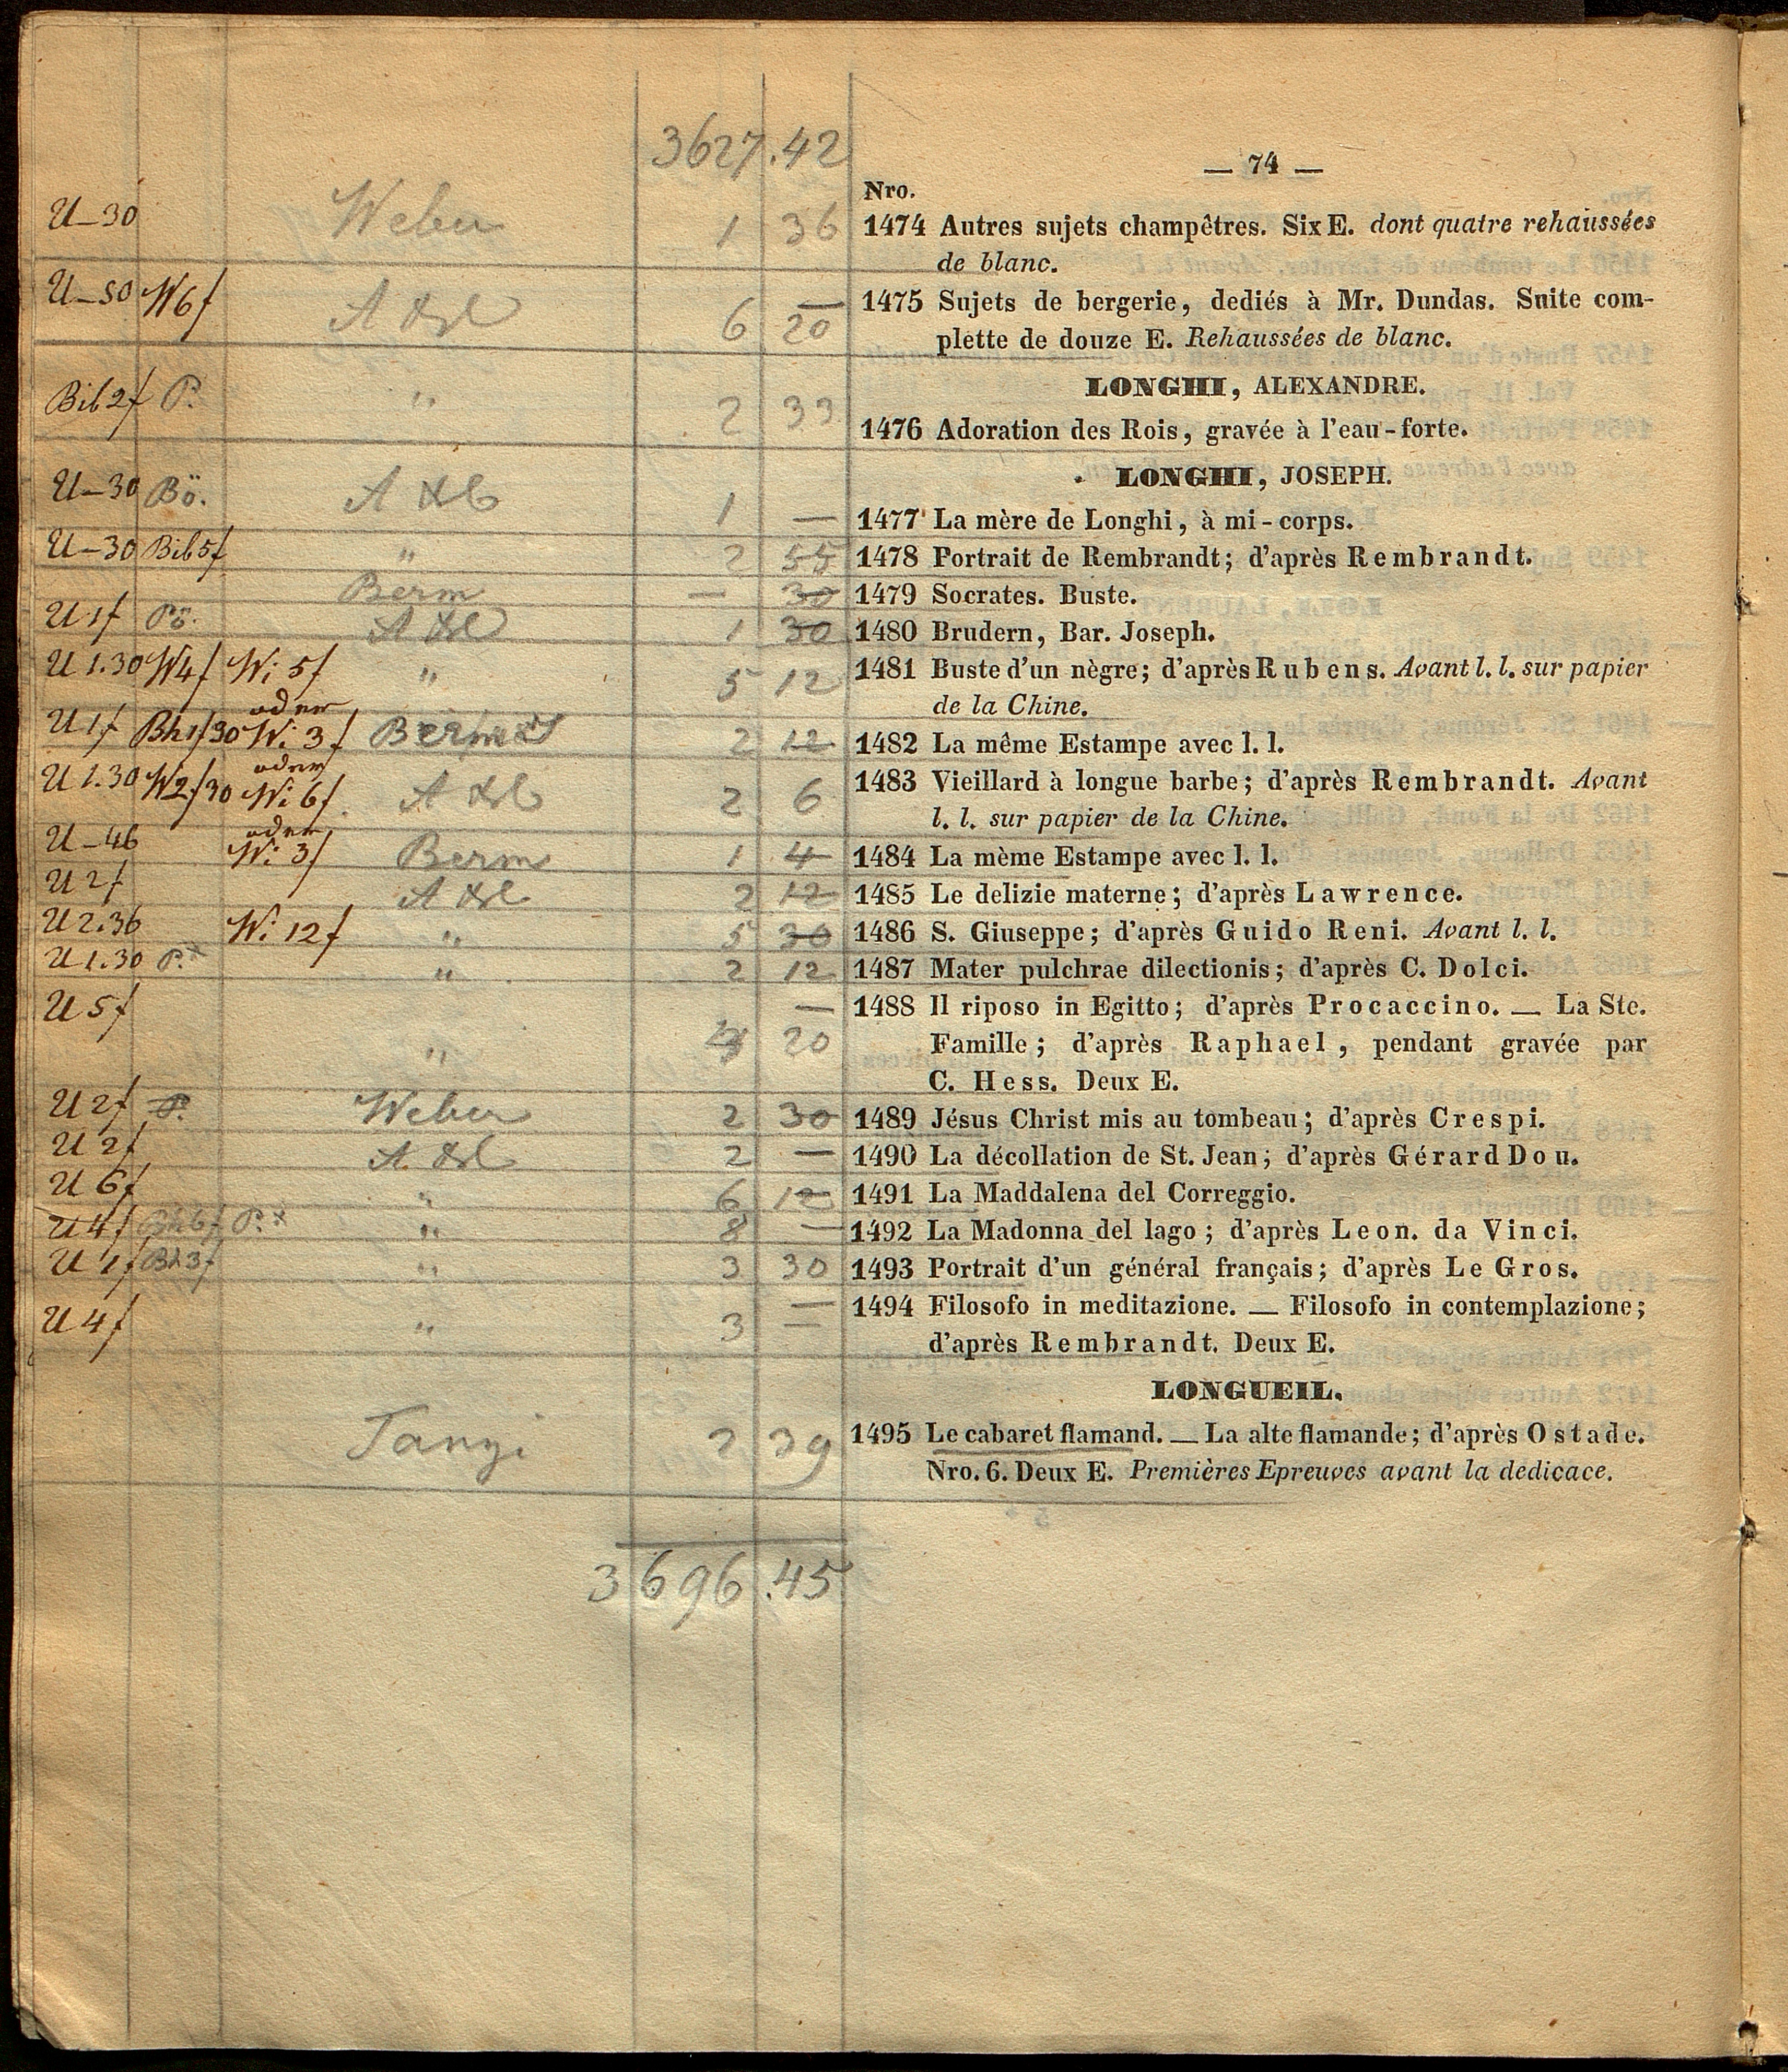 3627.42
— 74 —
Nro.
U—30 Weber 1 36 1474 Autres sujets champêtres. Six E. dont quatre rehaussées
de blanc.
U—50 W6f 6 20 1475 Sujets de bergerie, dediés à Mr. Dundas. Suite com-
plette de douze E. Rehaussées de blanc.
LONGHI, ALEXANDRE.
Bib 2f P. " 2 33 1476 Adoration des Rois, gravée à l'eau-forte.
LONGHI, JOSEPH.
U—30 Bö. 1 — 1477 La mère de Longhi, à mi-corps.
U—30 Bib 5f " 2 55 1478 Portrait de Rembrandt; d'après Rembrandt.
Berm — 30 1479 Socrates. Buste.
U 1f Pö. 1 30 1480 Brudern, Bar. Joseph.
U 1.30 W4f Wi 5f " 5 12 1481 Buste d'un nègre; d'après Rubens. Avant l. l. sur papier
oder de la Chine.
U 1f Bh 1f30 Wi 3f 2 12 1482 La même Estampe avec l. l.
oder
U 1.30 W2f30 Wi 6f 2 6 1483 Vieillard à longue barbe; d'après Rembrandt. Avant
oder l. l. sur papier de la Chine.
U—46 Wi 3f Berm 1 4 1484 La mème Estampe avec l. l.
U 2f 2 12 1485 Le delizie materne; d'après Lawrence.
U 2.36 Wi 12f " 5 30 1486 S. Giuseppe; d'après Guido Reni. Avant l. l.
U 1.30 P.* " 2 12 1487 Mater pulchrae dilectionis; d'après C. Dolci.
U 5f — 1488 Il riposo in Egitto; d'après Procaccino. — La Ste.
" 20 Famille; d'après Raphael, pendant gravée par
C. Hess. Deux E.
U 2f P. Weber 2 30 1489 Jésus Christ mis au tombeau; d'après Crespi.
U 2f 2 — 1490 La décollation de St. Jean; d'après Gérard Dou.
U 6f " 6 12 1491 La Maddalena del Correggio.
U 4f Bh 6f P.* " 8 — 1492 La Madonna del lago; d'après Leon. da Vinci.
U 1f Bh 3f " 3 30 1493 Portrait d'un général français; d'après Le Gros.
U 4f " 3 — 1494 Filosofo in meditazione. — Filosofo in contemplazione;
d'après Rembrandt. Deux E.
LONGUEIL.
2 39 1495 Le cabaret flamand. — La alte flamande; d'après Ostade.
Nro. 6. Deux E. Premières Epreuves avant la dedicace.
3696.45